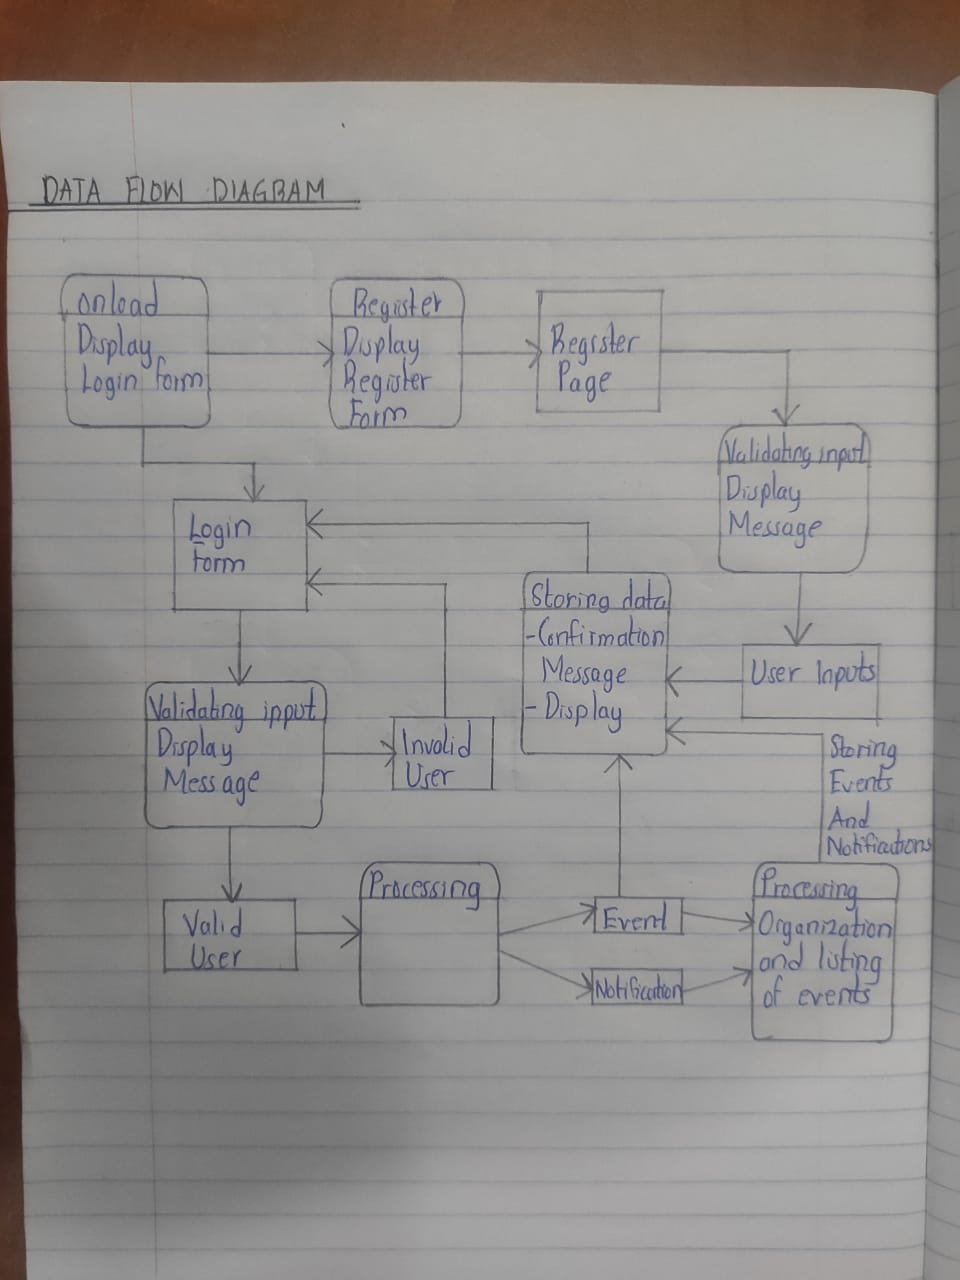 DATA FLOW DIAGRAM
onload
Display
Login form
Register
Display
Register
Form
Register
Page
Validating input
Display
Message
Login
form
Storing data
-Confirmation
Message
-Display
User Inputs
Validating ipput
Display
Message
Invalid
User
Storing
Events
And
Notifications
Valid
User
Processing
Event
Notification
Processing
Organization
and listing
of events